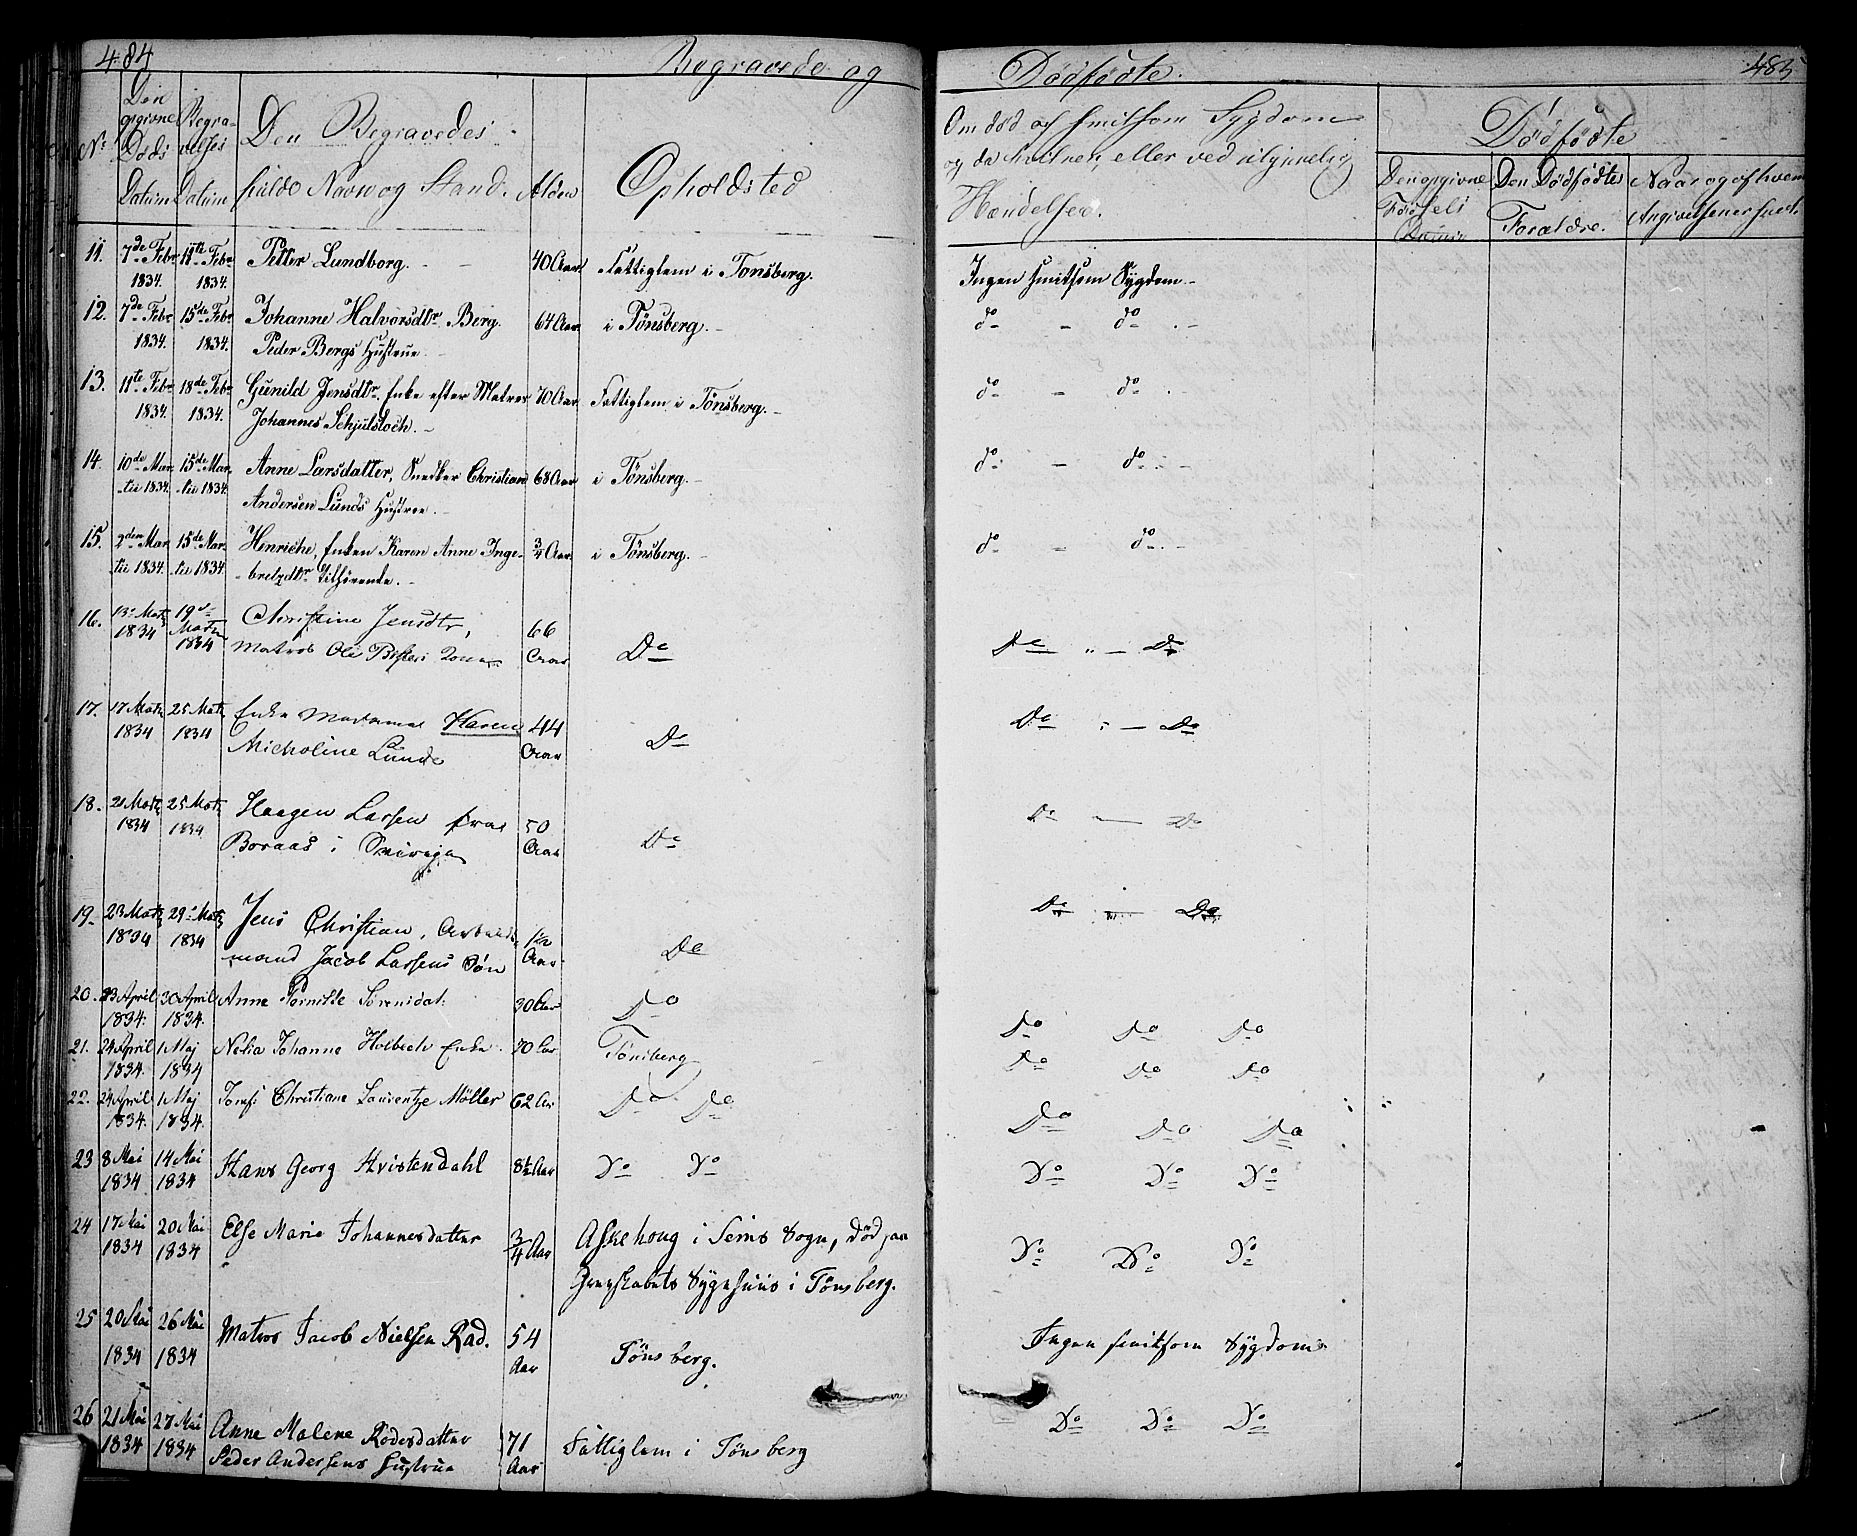 484
Begravede og
Dødfødte.
485
No
Den opgivne Døds Datum
Begravelses Datum
Den Begravedes fulde Navn og Stand.
Alder
Opholdsted
Om død af smitsom Sygdom
og da hvilken, eller ved ulykkelig
Hændelse.
Dødfødte
Den opgivne Fødsels Datum
Den Dødfødtes Forældre.
Naar og af hvem Angivelsen er skeet.
11. 7de Febr 1834. 11te Febr 1834. Petter Lundborg. - - 40 Aar Fattiglem i Tønsberg. Ingen smitsom Sygdom -
12. 7de Febr 1834. 15de Febr 1834. Johanne Halvorsdtr Berg. 64 Aar i Tønsberg. - do - do -
Peder Bergs Hustrue. -
13. 11te Febr 1834. 18de Febr 1834. Gunild Jensdtr. Enke efter Matros 70 Aar Fattiglem i Tønsberg. - do - do
Johannes -
14. 10de Martii 1834. 15de Martii 1834. Anne Larsdatter, Snedker Christian 68 Aar i Tønsberg. - do - do -
Andersen Lunds Hustrue. -
15. 2den Martii 1834. 15de Martii 1834. Henriche, Enken Karen Anne Inge- 3/4 Aar i Tønsberg. - do - do. -
bretzdtr tilhørende. -
16. 13 Martz 1834 19 Martz 1834 Christine Jensdtr, 66 Aar Do Do " - Do
Matros Ole
17. 17 Martz 1834 25 Martz 1834 Enke Madame Karen 44 Aar Do Do - Do
Micholine Lunde
18. 21 Martz 1834 25 Martz 1834 Haagen Larsen fra 50 Aar Do Do - Do
Boraas i
19. 23 Martz 1834 29 Martz 1834 Jens Christian, Arbeids- 1 1/2 Aar Do Do - Do
mand Jacob Larsens Søn
20. 23 April 1834. 30 April 1834. Anne Pernille Sørensdat: 30 Aar Do Do Do Do
21. 24 April 1834. 1 Maj 1834 Nelia Johanne Holbech Enke. 70 Aar Tønsberg Do Do Do
22. 24 April 1834. 1 Maj 1834. Jomf: Christiane Laurentze Møller 62 Aar Do Do Do Do Do
23 8 Mai 1834 14 Mai 1834 Hans Georg Kristendahl 8 1/2 Aar Do Do Do Do Do
24 17 Mai 1834 20 Mai 1834 Else Marie Johannesdatter 3/4 Aar Askehoug i Sems Sogn, død paa Do Do Do
Grevskabets Sygehuus i Tønsberg.
25 20 Mai 1834 26 Mai 1834 Matros Jacob Nielsen Rad. 54 Aar Tønsberg. Ingen smitsom Sygdom
26 21 Mai 1834 27 Mai 1834 Anne Malene Rødersdatter 71 Aar Fattiglem i Tønsberg Do Do Do
Peder Andersens Hustrue